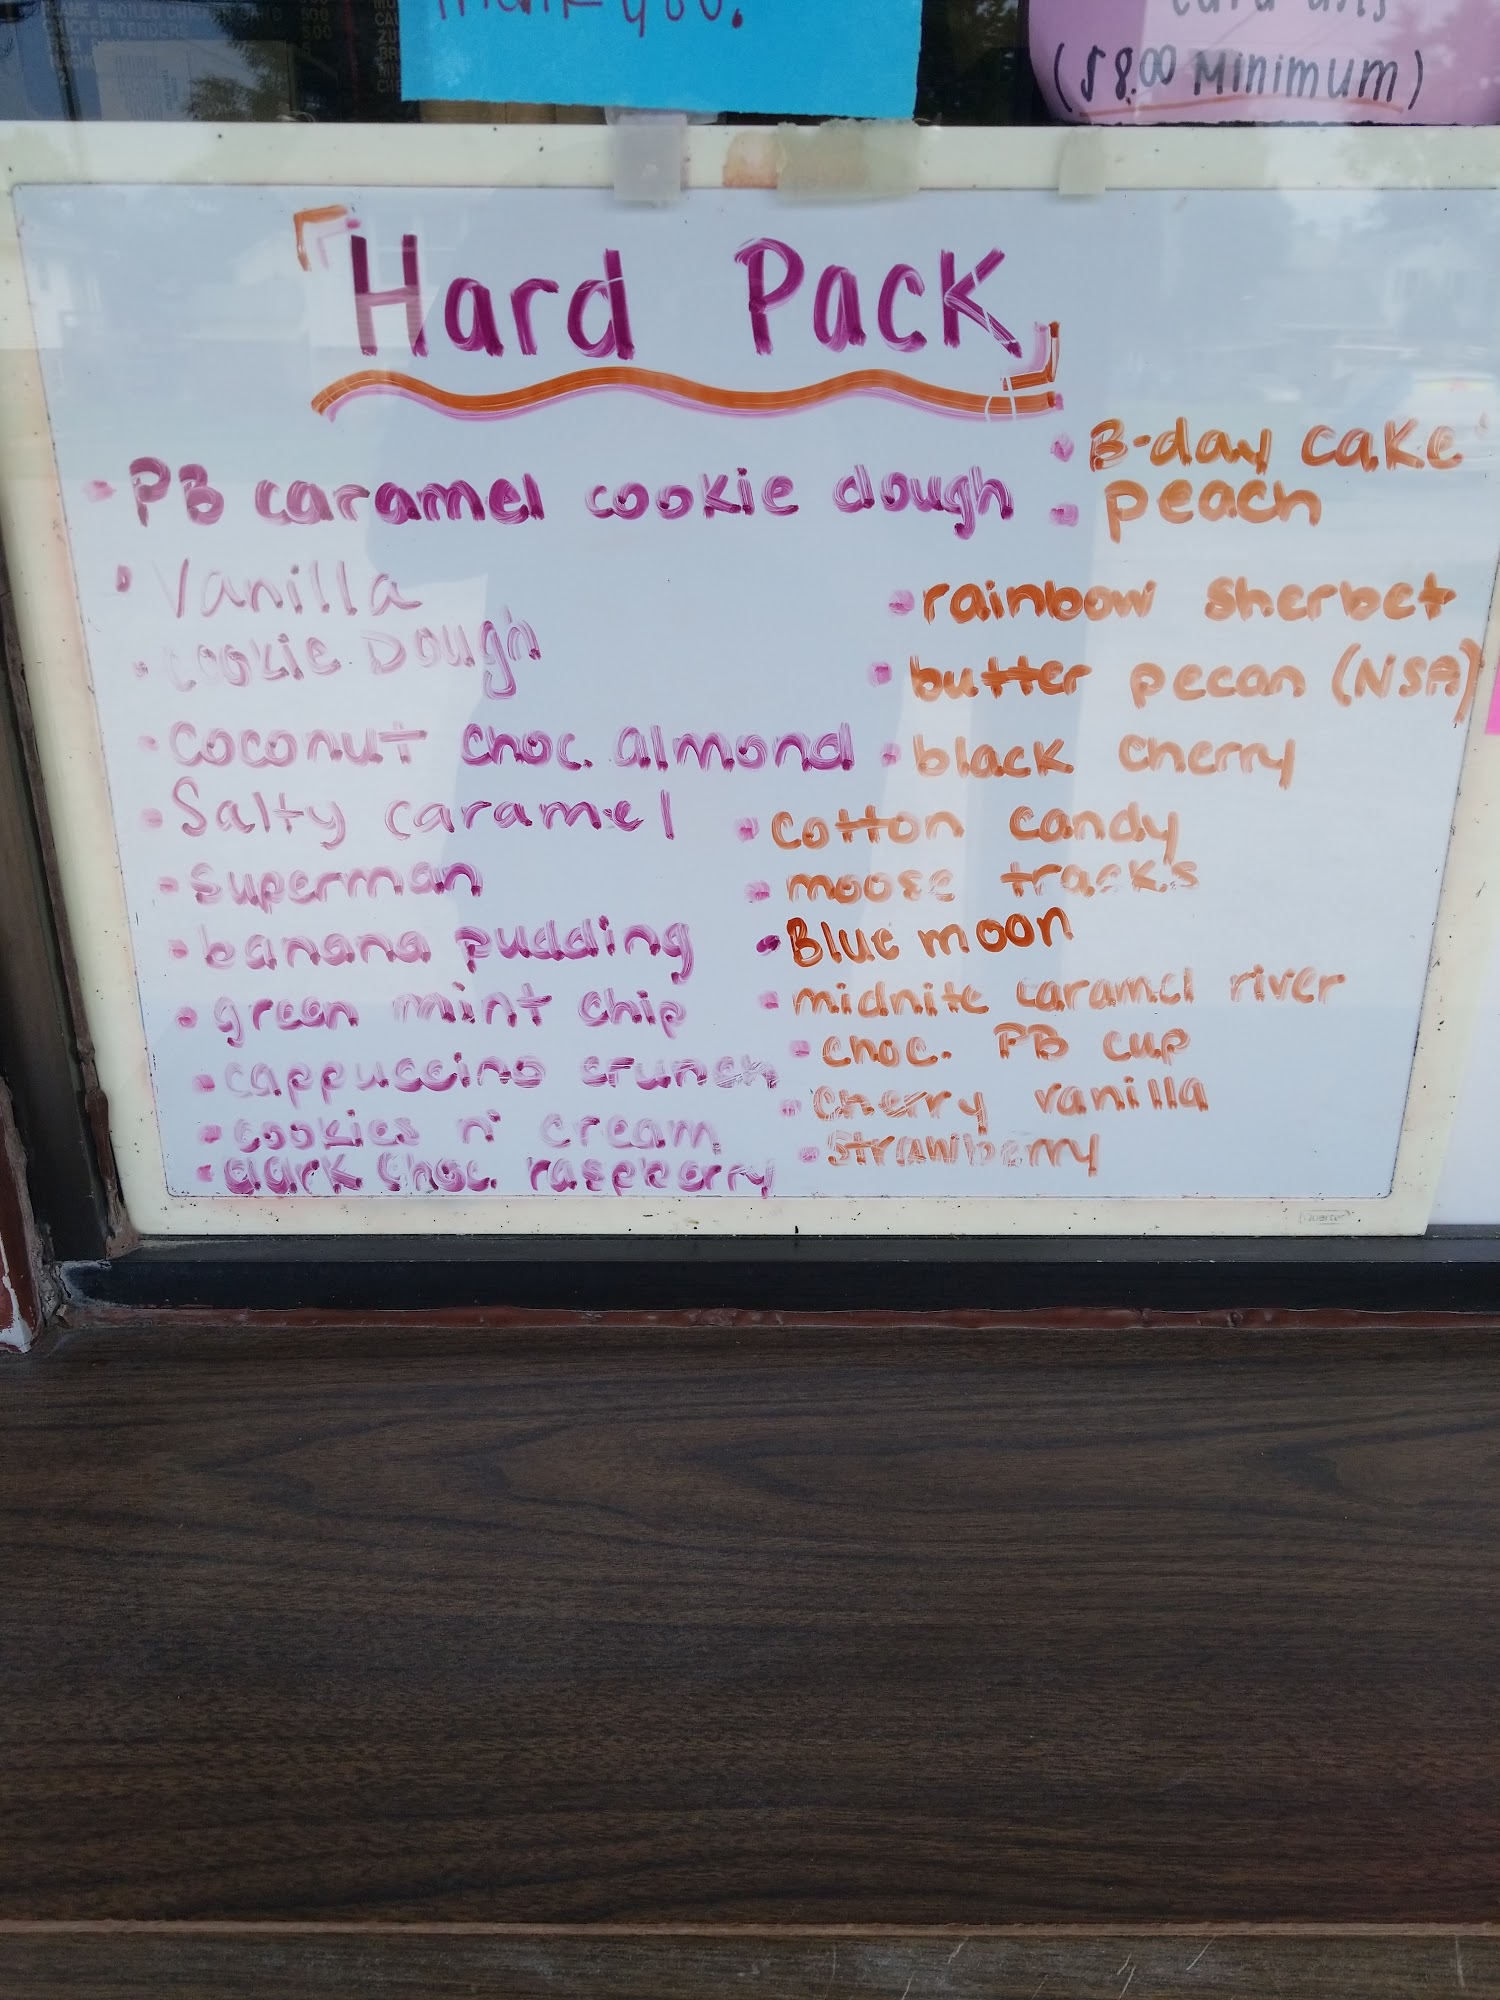 Thank you.
($8.00 Minimum)
Hard Pack
• PB caramel cookie dough
• Vanilla
• cookie Dough
• coconut choc. almond
• Salty caramel
• superman
• banana pudding
• green mint chip
• cappuccino crunch
• cookies n' cream
• dark choc. raspberry
• B-day cake
• peach
• rainbow sherbet
• butter pecan (NSA)
• black cherry
• cotton candy
• moose tracks
• Blue moon
• midnite caramel river
• choc. PB cup
• cherry vanilla
• strawberry
Quartet